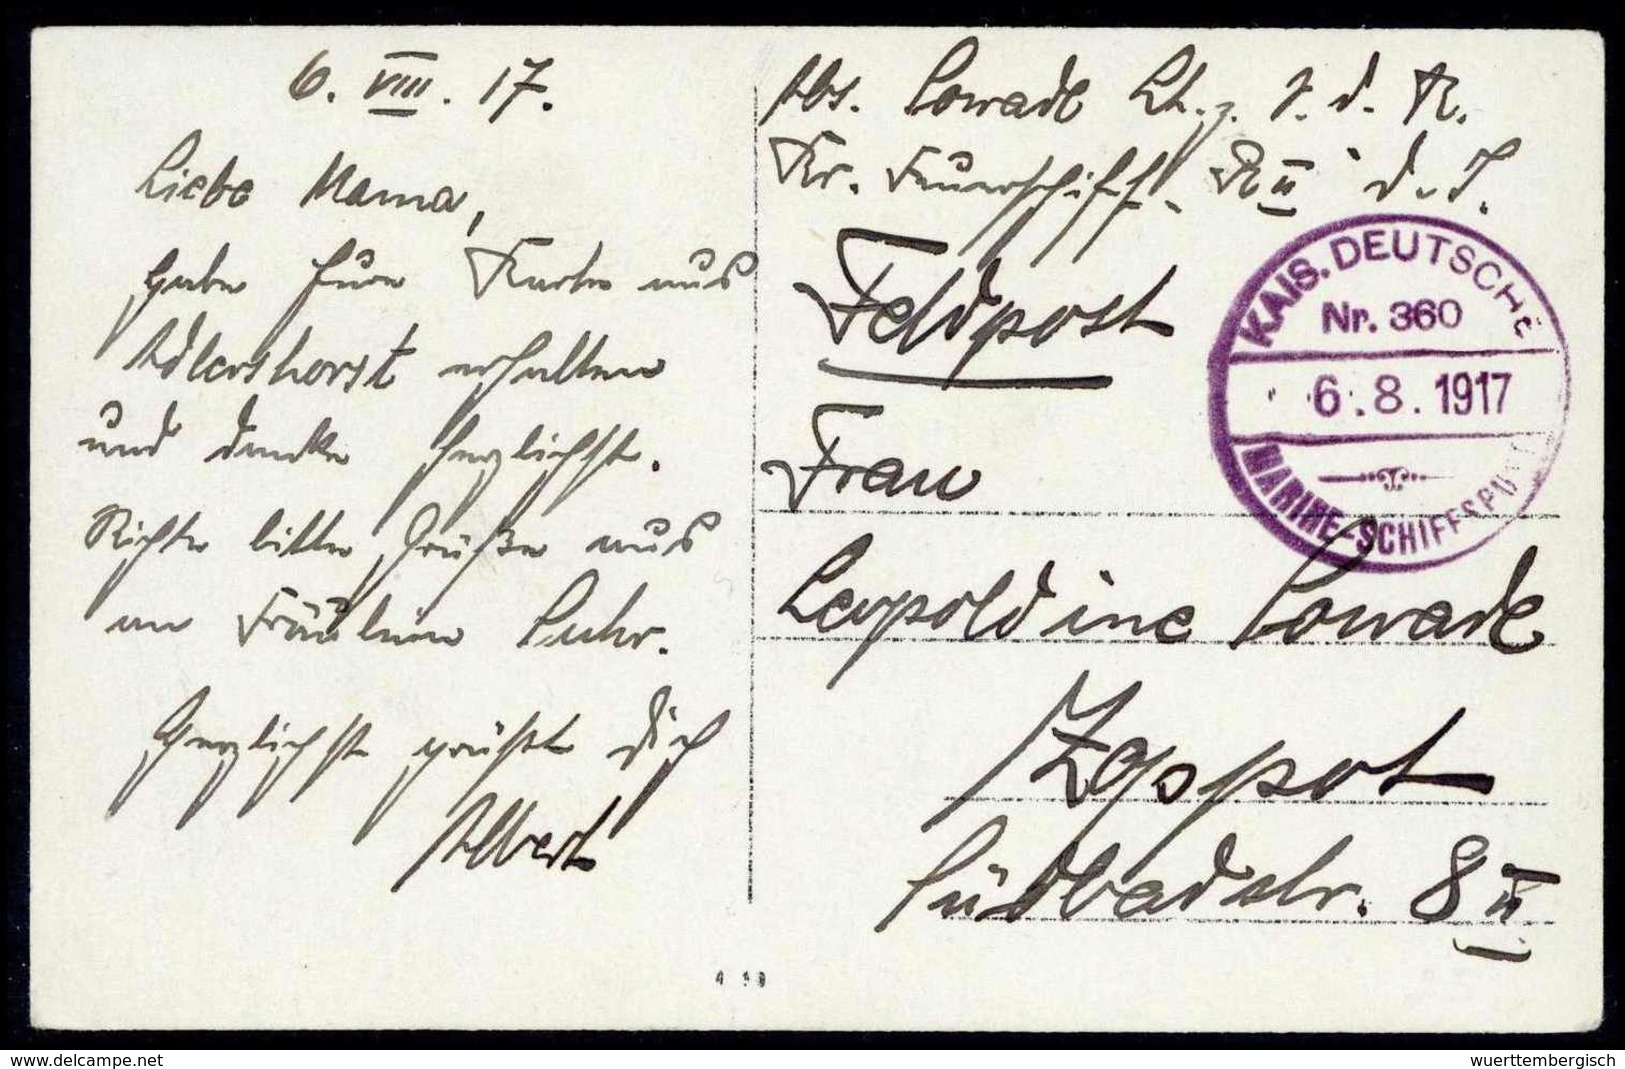 6. VIII. 17.
Liebe Mama,
habe Eure Karte aus
Adlershorst erhalten
und danke herzlichst.
Richte bitte Grüße aus
an Fräulein Suhr.
Herzlichst grüßt Dich
Albert
Abs. Sowade Lt. z. S. d. R.
Kr. Feuerschiff. R II d. J.
Feldpost
Frau
Leopoldine Sowade
Zoppot
Südbadstr. 8 II
KAIS. DEUTSCHE
Nr. 360
6.8.1917
MARINE-SCHIFFSPOST
delcampe.net
wuerttembergisch